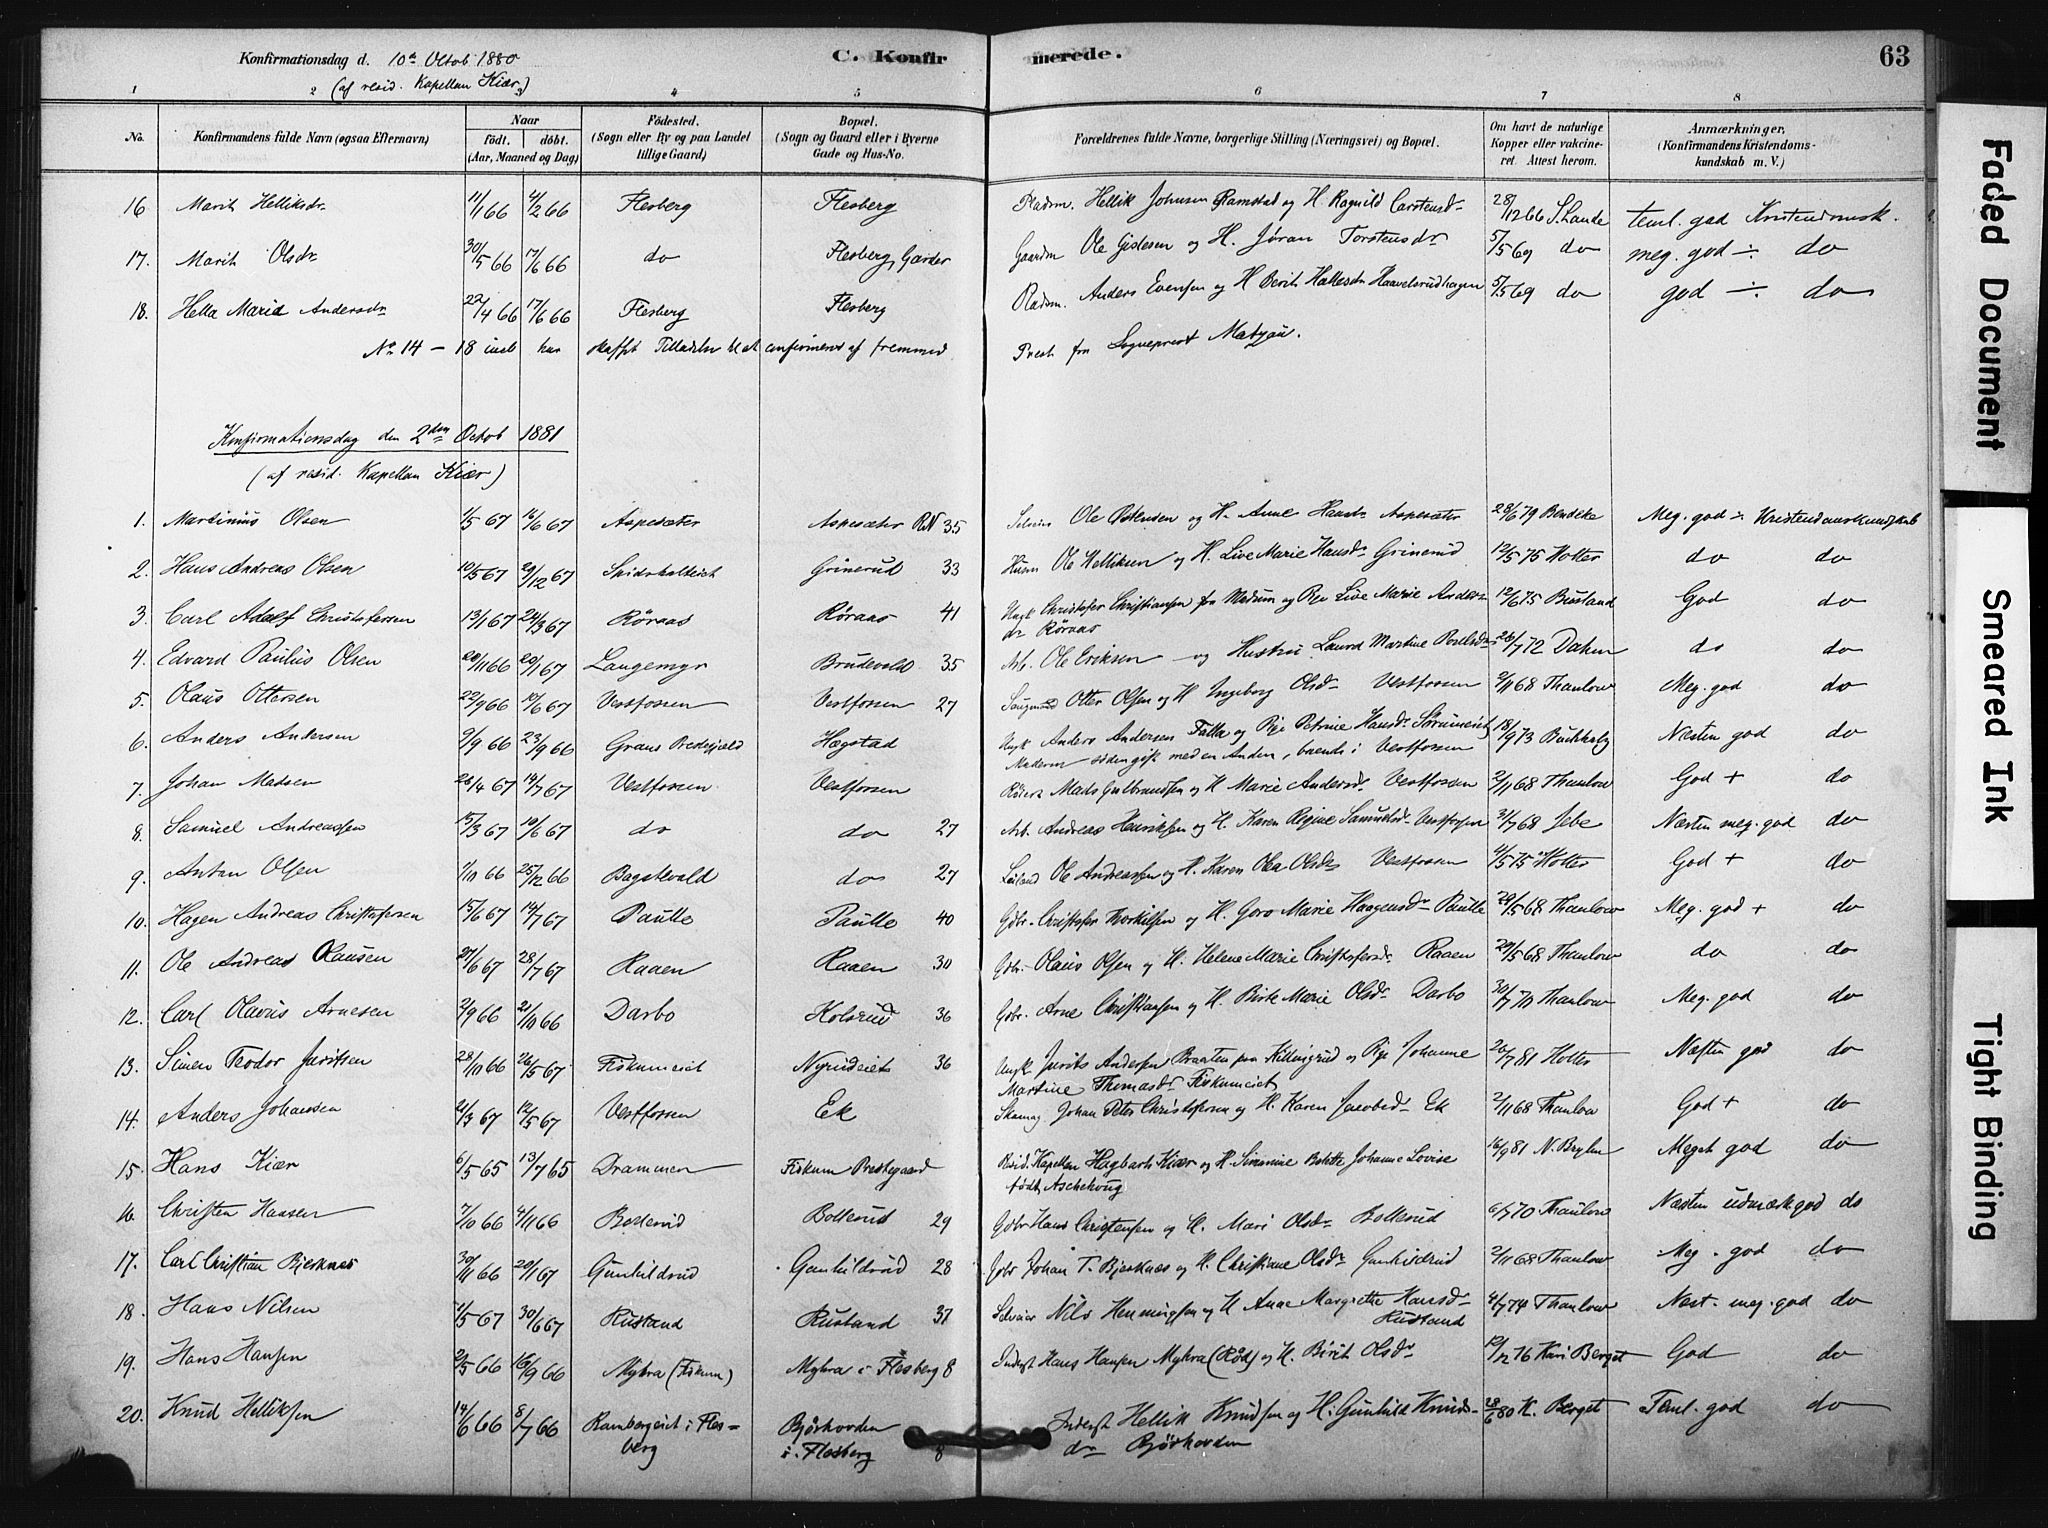 Konfirmationsdag d. 10de Octob 1880
(af resid. Kapellan Kiær)
C. Konfir merede.
63
1 2 3 4 5 6 7 8
No. Konfirmandens fulde Navn (ogsaa Efternavn) Naar født. døbt. (Aar, Maaned og Dag) Fødested. (Sogn eller By og paa Landet tillige Gaard) Bopæl. (Sogn og Gaard eller i Byerne Gade og Hus-No. Forældrenes fulde Navne, borgerlige Stilling (Næringsvei) og Bopæl. Om havt de naturlige Kopper eller vakcineret. Attest herom. Anmærkninger, (Konfirmandens Kristendomskundskab m. V.)
16 Marit Helliksdr 11/1 66 4/2 66 Flesberg Flesberg Pladsm. Hellik Johnsen Ramstad og H. Ragnild Carstensdr 28/12 66 S. Lande teml. god Kristendomsk.
17. Marit Olsdr 30/5 66 17/6 66 do Flesberg, Garder Gaardm Ole Gislesen og H. Jøran Torstensdr 5/5 69 do meg. god ÷ do
18. Hella Maria Andersdr 22/4 66 17/6 66 Flesberg Flesberg Pladsm. Anders Evensen og H Berit Hallesdr Haavelsrudhagen 5/5 69 do god ÷ do
No 14 - 18 incl har skaffet Tilladelse til at confirmeres af fremmed Prest fra Sogneprest
Konfirmationsdag den 2den Octob 1881
(af resid. Kapellan Kiær)
1. Martinius Olsen 1/5 67 16/6 67 Aspesæter Aspesæter RN 35 Selveier Ole Østensen og H. Anne Hansdr Aspesæter 28/6 79 Bendeke Meg. god ÷ Kristendomskundskab
2. Hans Andreas Olsen 10/5 67 29/12 67 Grinerud 33 Husm Ole Helliksen og H. Live Marie Hansdr Grinerud 12/5 75 Holter do do
3 Carl Adolf Christofersen 13/1 67 24/3 67 Røraas Røraas 41 Ungk Christofer Christiansen fra Modum og Pige Live Marie Anders-
dr Røraas 12/6 75 Bustand God do
4. Edvard Paulus Olsen 28/11 66 20/1 67 Langemyr Brudevold 35 Arb. Ole Eriksen og Hustru Laura Martine 26/7 72 Dahm do do
5. Olaus Ottersen 22/9 66 10/6 67 Vestfossen Vestfossen 27 Otter Olsen og H Ingeborg Olsdr Vestfossen 2/11 68 Thaulow Meg. god do
6. Anders Andersen 9/9 66 23/9 66 Hægstad Ungk Anders Andersen Falla og Pige Petrine Hansdr 18/9 73 Buchholz Næsten god do
Moderen siden gift med en Anden, boende i Vestfossen
7. Johan Madsen 28/4 67 14/7 67 Vestfossen Vestfossen Mads Gulbrandsen og H Marie Andersdr Vestfossen 2/11 68 Thaulow God + do
8. Samuel Andreassen 15/3 67 10/6 67 do do 27 Arb. Andreas Henriksen og H. Karen Regine Samuelsdr Vestfossen 31/7 68 Jebe Næsten meg. god do
9. Anton Olsen 1/10 66 25/12 66 Bagstevold do 27 Ole Andreassen og H. Karen Olea Olsdr Vestfossen 4/5 75 Holter God + do
10. Hagen Andreas Christofersen 15/6 67 14/7 67 Paulle Paulle 40 Gdbr. Christofer Thorkilsen og H. Goro Marie Haagensdr Paulle 29/5 68 Thaulow Meg. god + do
11. Ole Andreas Olausen 27/6 67 28/7 67 Raaen Raaen 30 Gdbr. Olaus Olsen og H. Helene Marie Christofersdr Raaen 29/5 68 Thaulow do do
12. Carl Olavus Arnesen 2/9 66 21/10 66 Darbo Kolsrud 36 Gdbr. Arne Christiansen og H. Birte Marie Olsdr Darbo 30/7 70 Thaulow Meg. god do
13. Simen Teodor Juritsen 28/10 66 26/5 67 Fiskumeiet Nyrudeiet 36 Ungk. Jurits Andersen Braaten paa Killingrud og Pige Johanne
Martine Thomasdr Fiskumeiet 26/7 81 Holter Næsten god do
14. Anders Johansen 2/3 67 12/5 67 Vestfossen Ek Skomag. Johan Peter Christofersen og H. Karen Jacobsdr Ek 2/11 68 Thaulow God + do
15. Hans Kiær 6/5 65 13/7 65 Drammen Fiskum Prestegaard Resid. Kapellan Hagbarth Kiær og H. Simmine Bolette Johanne Lovise
født Aschehoug 16/9 81 N. Bryhn Meget god do
16. Christen Hansen 7/10 66 4/11 66 Bollerud Bollerud 29 Gdbr Hans Christensen og H. Mari Olsdr Bollerud 6/7 70 Thaulow Næsten udmærk. god do
17. Carl Christian Bjerknes 30/11 66 20/1 67 Gunhildrud Gunhildrud 28 Gdbr Johan T. Bjerknes og H. Christiane Olsdr Gunhildrud 2/11 68 Thaulow Meg. god do
18. Hans Nilsen 1/5 67 30/6 67 Rustand Rustand 37 Selveier Nils Henningsen og H Anne Margrethe Hansdr
Rustand 4/7 74 Thaulow Næst. meg. god do
19. Hans Hansen 2/5 66 16/9 66 Myhra (Fiskum) Myhra i Flesberg 8 Inderst Hans Hansen Myhra (Rød) og H. Birit Olsdr 12/12 76 Kari Berget God do
20. Knud Helliksen 14/6 66 8/7 66 Rambergeiet i Fles-
berg Bjørkorden
i Flesberg 8 Inderst Hellik Knudsen og H. Gunhild Knuds-
dr Bjørkorden 28/6 80 K. Berget Teml. god do
Faded Document
Smeared Ink
Tight Binding